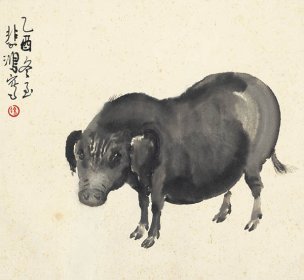 乙酉冬至
悲鴻寫